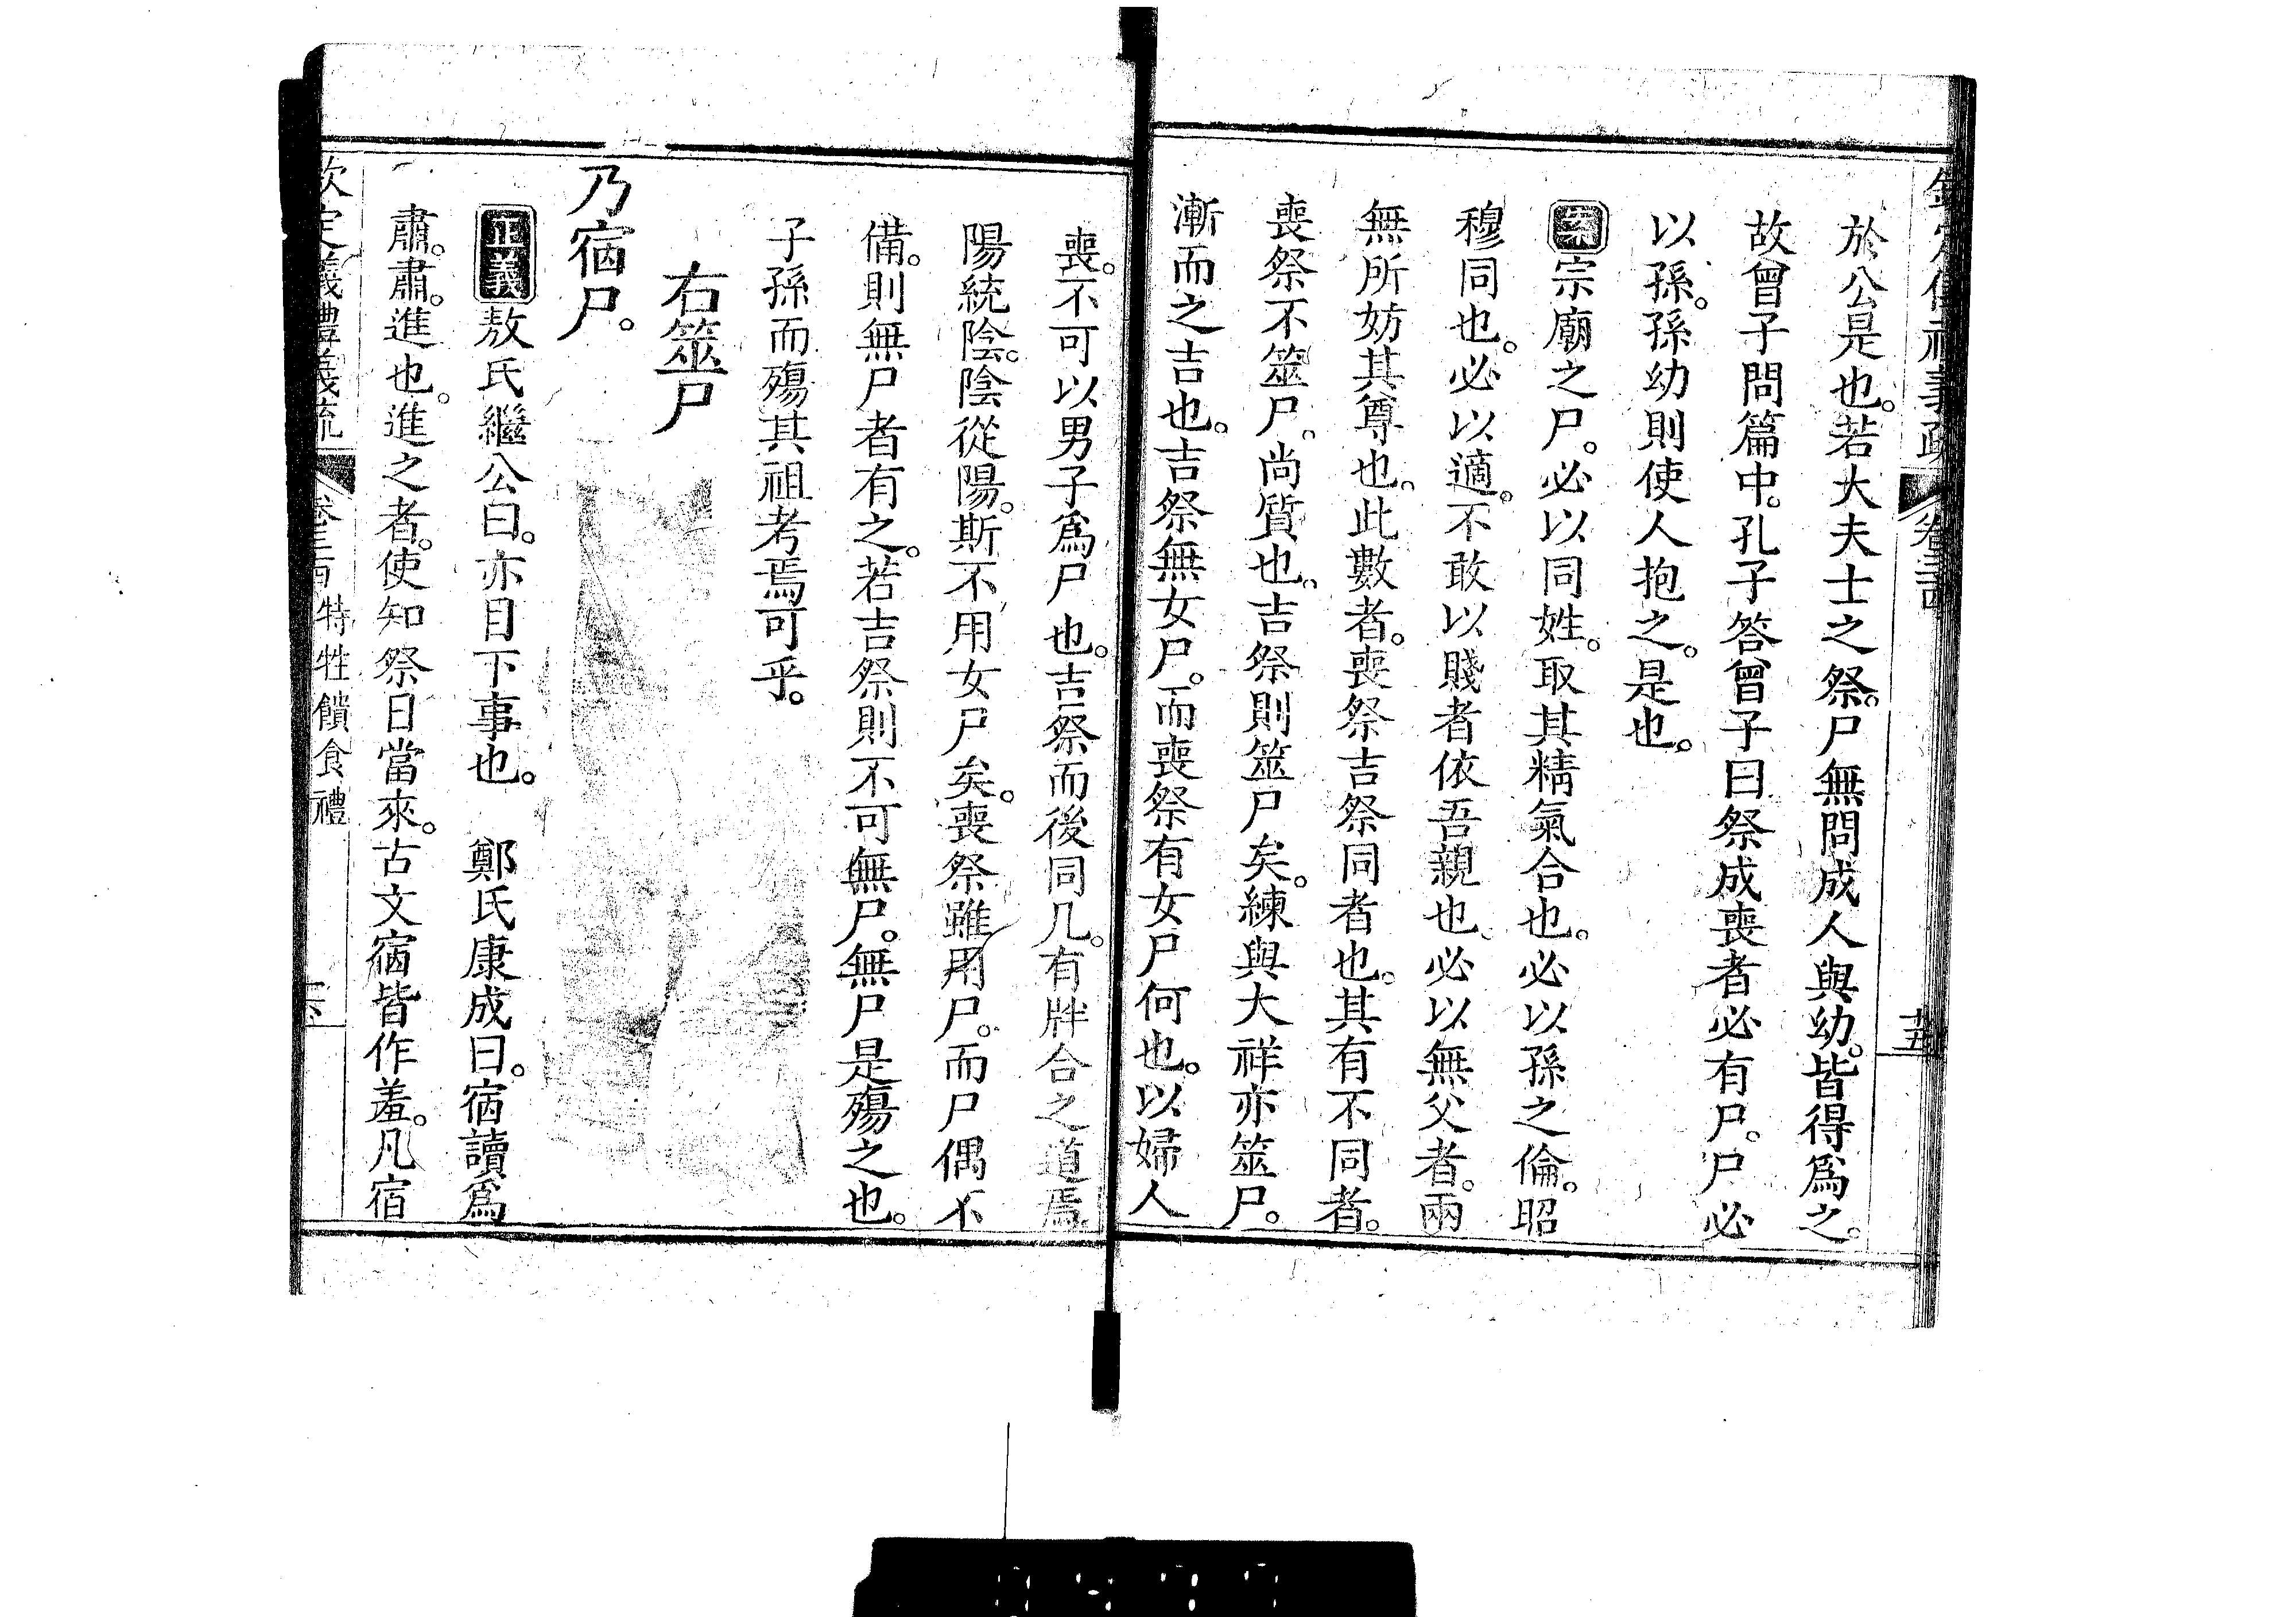 於公是也。若大夫士之祭。尸無問成人與幼。皆得爲之。
故曾子問篇中。孔子答曾子曰祭成喪者必有尸。尸必
以孫。孫幼則使人抱之。是也。
案宗廟之尸。必以同姓。取其精氣合也。必以孫之倫。昭
穆同也。必以適。不敢以賤者依吾親也。必以無父者。兩
無所妨其尊也。此數者。喪祭吉祭同者也。其有不同者。
喪祭不筮尸。尚質也。吉祭則筮尸矣。練與大祥亦筮尸。
漸而之吉也。吉祭無女尸。而喪祭有女尸何也。以婦人
喪。不可以男子爲尸也。吉祭而後同几。有牉合之道焉。
陽統陰。陰從陽。斯不用女尸矣。喪祭雖用尸。而尸偶不
備。則無尸者有之。若吉祭則不可無尸。無尸是殤之也。
子孫而殤其祖考焉可乎。
右筮尸
乃宿尸。
正義敖氏繼公曰。亦目下事也。 鄭氏康成曰。宿讀爲
肅。肅。進也。進之者。使知祭日當來。古文宿皆作羞。凡宿
欽定義禮義疏 特牲饋食禮